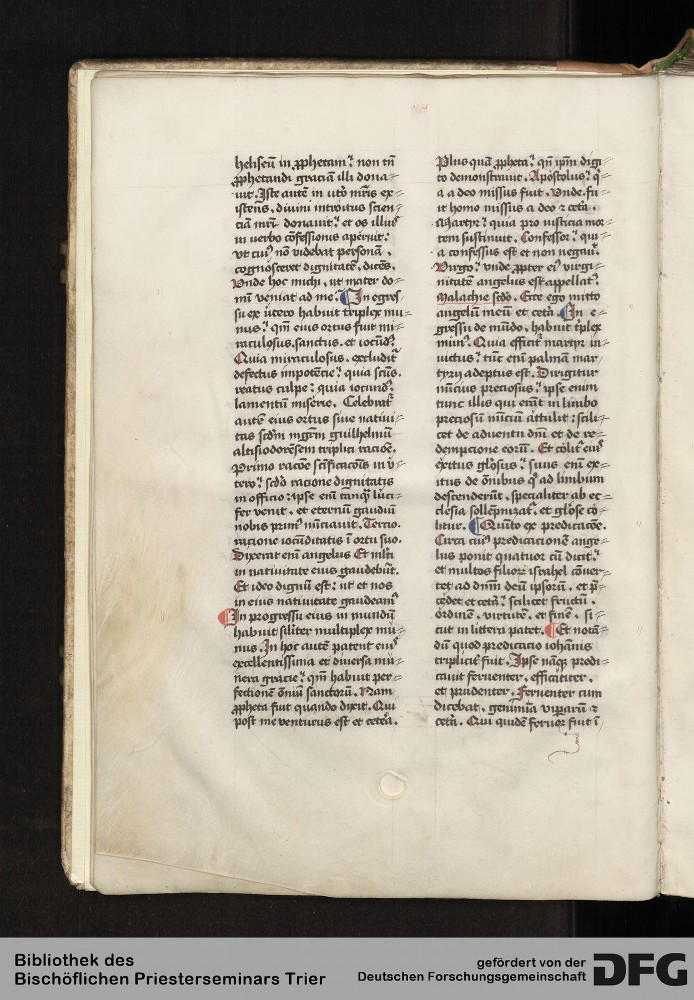 heliseū in ꝓphetam⁊ non tn̄
ꝓphetandi graciam illi dona⸗
uit. Iste autē in utō mr̄is ex⸗
istens, diuini introitus scien⸗
ciā mr̄i donauit⁊ et os illius
in uerbo cōfessionis aperuit⁊
ut cui9 nō videbat personā,
cognosceret dignitatē, dicēs.
Vnde hoc michi, ut mater do⸗
mī veniat ad me. In egres
su ex utero habuit triplex mu
nus⁊ qm̄ eius ortus fuit mi⸗
raculosus, sanctus, et iocūd9.
Quia miraculosus, excludit᷑
defectus impotēcie⁊ quia scūs,
reatus culpe⁊ quia iocund9,
lamentū miserie. Celebrat᷑
autē eius ortus siue natiui⸗
tas scdm̄ mgrm̄ guilhelmū
altisiodorēsem triplici racōe.
Primo racōe scīficacōis in v⸗
tero⁊ scdō racione dignitatis
in officio⁊ ipse eni tanq̄ luci⸗
fer venit, et eternū gaudiū
nobis prim9 nūciauit. Tercio
racione iocūditatis ī ortu suo.
Dixerat enī angelus Et mlti
in natiuitate eius gaudebūt.
Et ideo dignū est⁊ ut et nos
in eius natiuitate gaudeam9
In progressu eius in mundū
habuit silīter multiplex mu⸗
nus. In hoc autē patent eius
excellentissima et diuersa mu⸗
nera gracie⁊ qm̄ habuit per⸗
fectionē oīniū sanctorū. Nam
ꝓpheta fuit quando dixit. Qui
post me venturus est et cetera.
Plus quā ꝓpheta⁊ qn̄ ipm̄ digi⸗
to demonstrauit. Apostolus⁊ q⸗
a a deo missus fuit. Vnde. fu⸗
it homo missus a deo ⁊ cetā.
Martyr⁊ quia pro iusticia mor⸗
tem sustinuit. Confessor⁊ qui⸗
a confessus est et non negauit.
Virgo⁊ vnde ꝓpter ei9 virgi⸗
nitatē angelus est appellat9.
Malachie scdō. Ecce ego mitto
angelū meū et cetā. In e⸗
gressu de mūdo, habuit tplex
mun9. Quia effīcit᷑ martyr in⸗
uictus⁊ tūc enī palmā mar⸗
tyrij adeptus est. Dirigitur
nūcius preciosus⁊ ipse enim
tunc illis qui erāt in limbo
preciosū nūciū attulit⁊ scili⸗
cet de aduentu dn̄i et de re⸗
dempcione eorū. Et colit᷑ ei9
exitus gl̄osus⁊ huius enī ex⸗
itus de ōnibus q9 ad limbum
descenderūt, specialiter ab ec⸗
clesia sollēpnizat᷑, et gl̄ose co⸗
litur. Quīto ex predicacōe.
Circa cui9 predicacionē ange⸗
lus ponit quatuor cū dicit⁊
et multos filiorū israhel cōuer⸗
tet ad dn̄m deū ipsorū, et p̄⸗
cedet et cetā⁊ scilicet fructū,
ordinē, virtutē, et finē, si⸗
cut in littera patet. Et notā⸗
dū quod predicacio iohānis
triplicit᷑ fuit. Ipse nāq̄ predi⸗
cauit feruenter, efficaciter,
et prudenter. Feruenter cum
dicebat, genimina viperarū ⁊
cetā. Qui quidē feruor fuit ī
Bibliothek des
Bischöflichen Priesterseminars Trier
gefördert von der
Deutschen Forschungsgemeinschaft
DFG